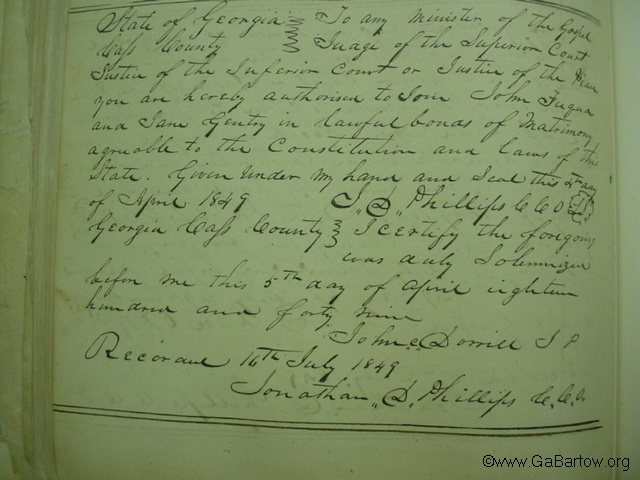 State of Georgia To any minister of the Gospel
Cass County Judge of the Superior Court
Justice of the Inferior Court or Justice of the Peace
you are hereby authorised to Join John Fuqua
and Jane Gentry in lawful bonds of Matrimony
agreuable to the Constitution and laws of this
State. Given under my hand and Seal this 4th day
of April 1849 J. D. Phillips C C O L.S.
Georgia Cass County I certify the foregoing
was duly Solemnized
before me this 5th day of April eighteen
hundred and forty nine
John Dorrill J P
Recorded 16th July 1849
Jonathan D. Phillips C.C.O.
©www.GaBartow.org